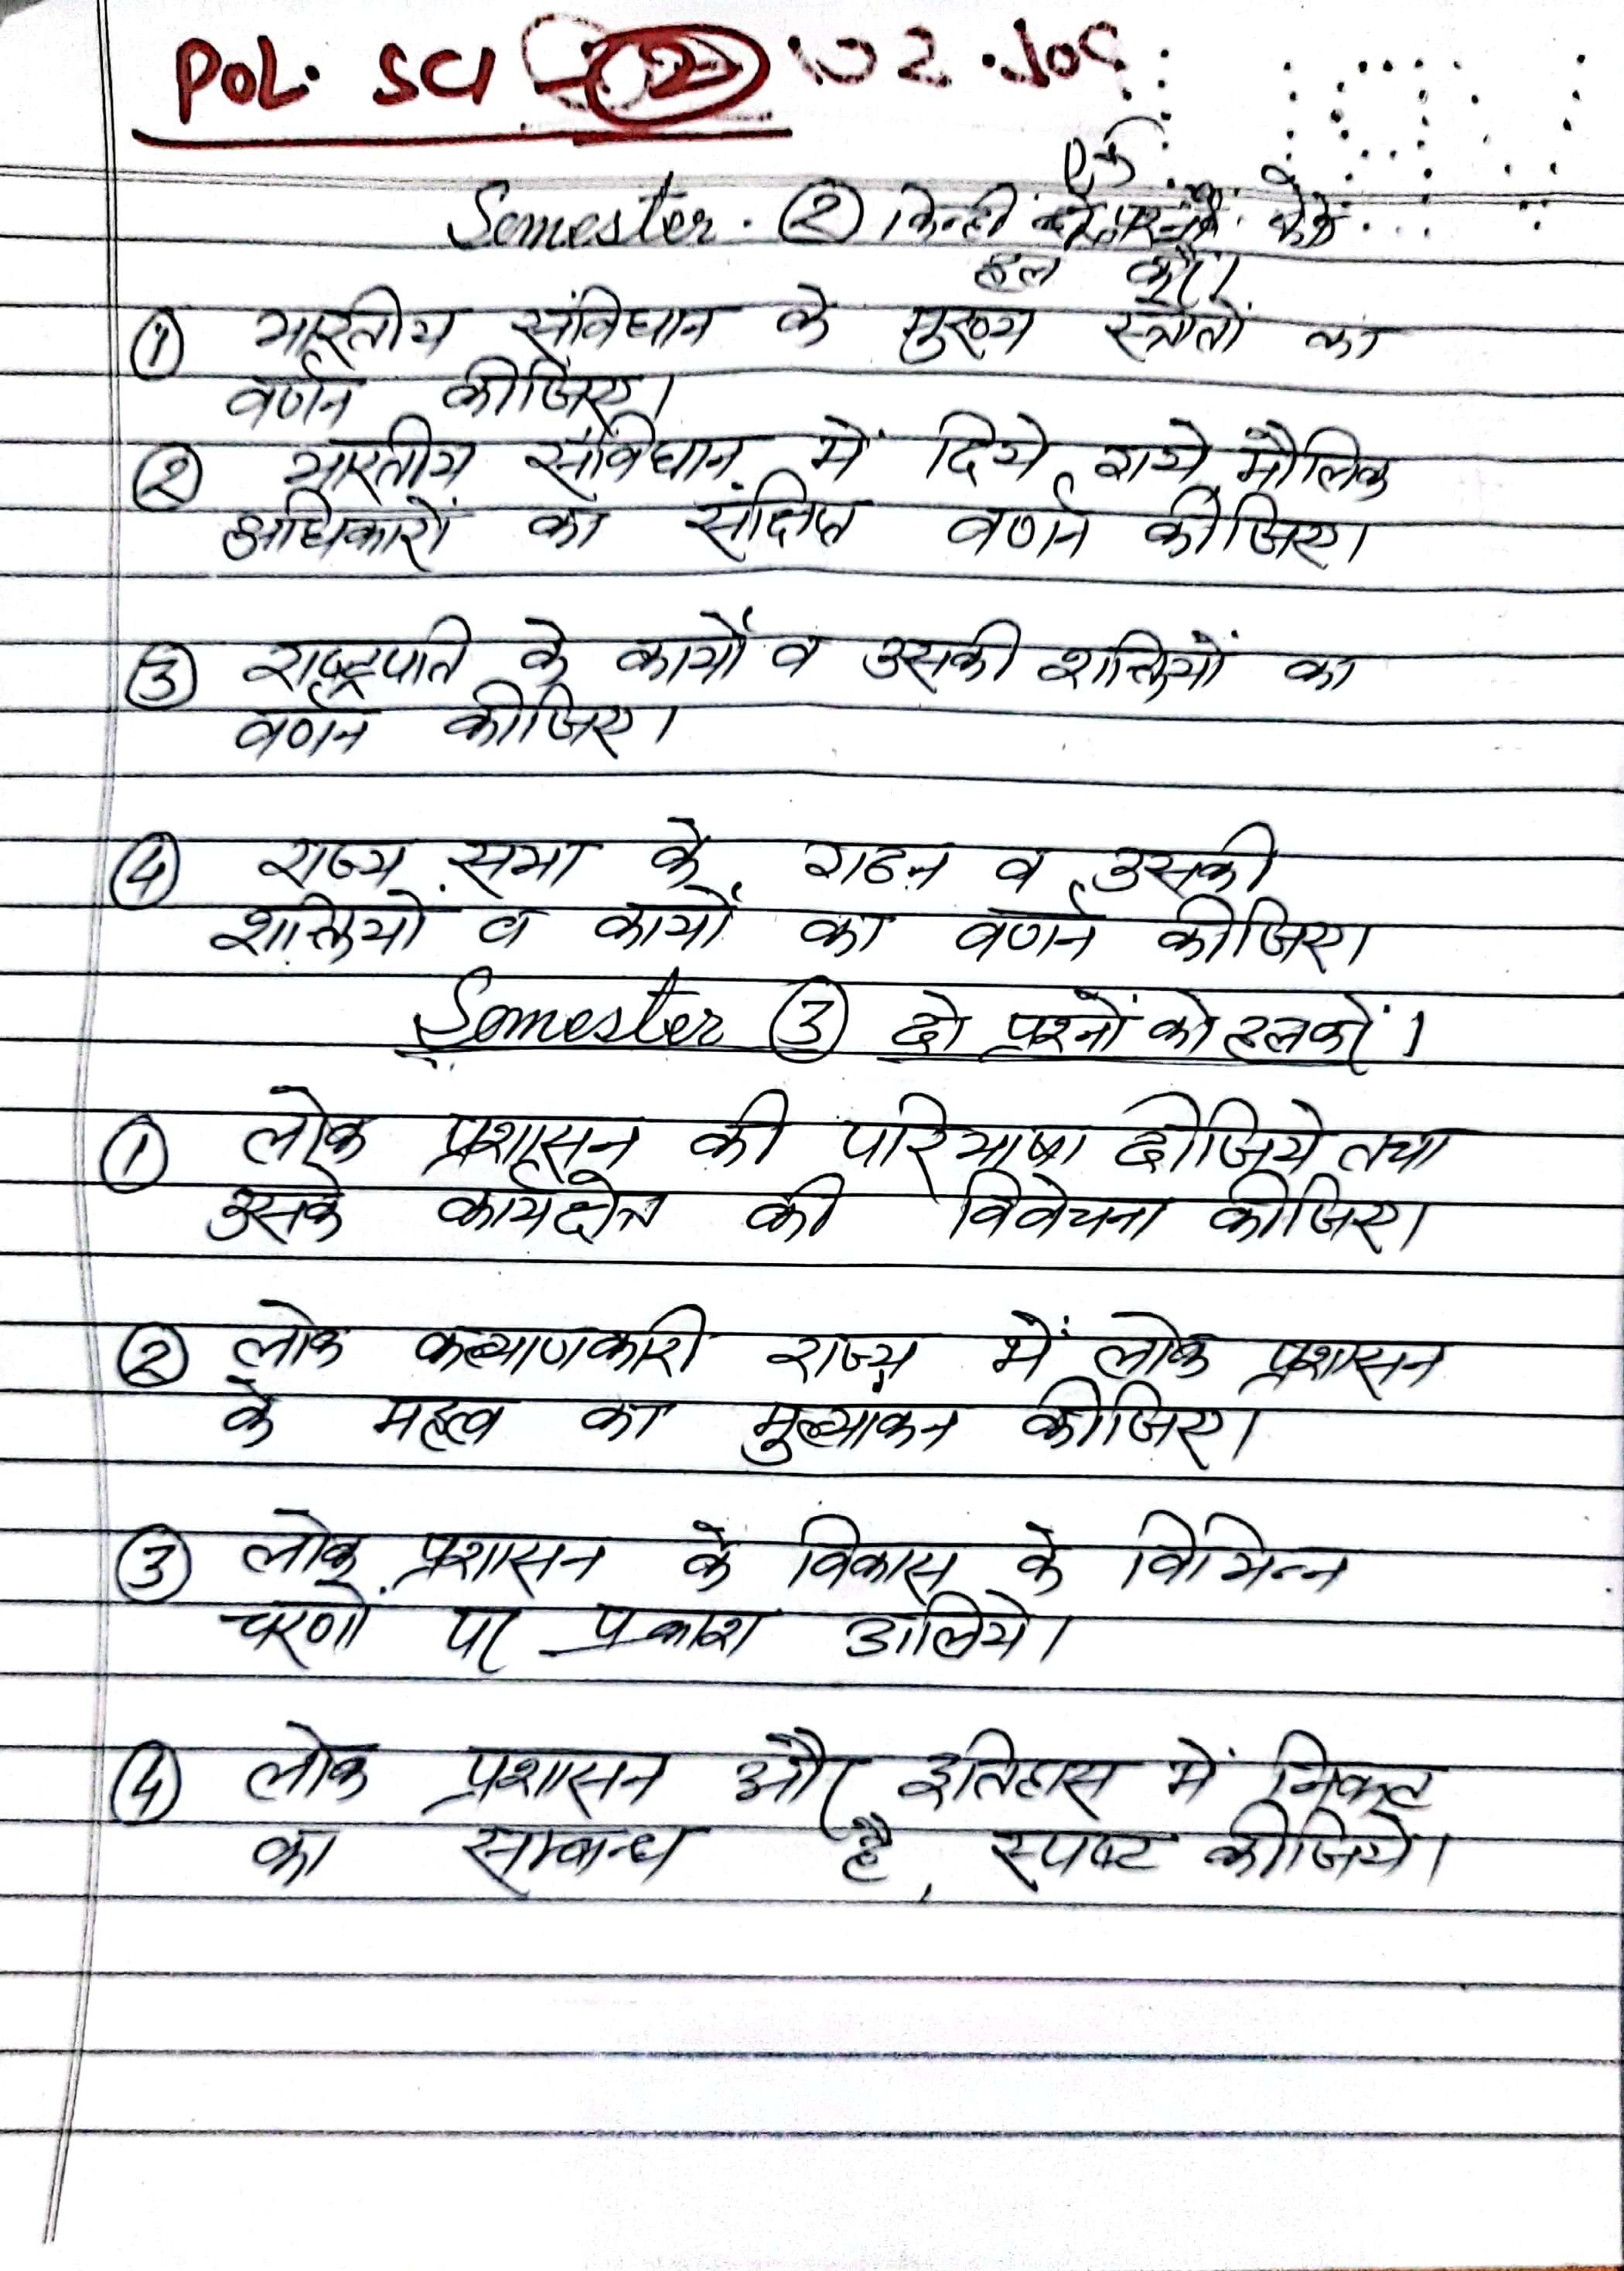 POL. SCI (2)
Semester. (2) किन्ही प्रश्नों को
हल करें।
(1) भारतीय संविधान के मुख्य स्त्रोतों का
वर्णन कीजिए।
(2) भारतीय संविधान में दिये गये मौलिक
अधिकारों का संक्षिप्त वर्णन कीजिए।
(3) राष्ट्रपति के कार्यों व उसकी शक्तियों का
वर्णन कीजिए।
(4) राज्य सभा के गठन व उसकी
शक्तियों व कार्यों का वर्णन कीजिए।
Semester (3) दो प्रश्नों को हल करें।
(1) लोक प्रशासन की परिभाषा दीजिये तथा
उसके कार्यक्षेत्र की विवेचना कीजिए।
(2) लोक कल्याणकारी राज्य में लोक प्रशासन
के महत्व का मुल्यांकन कीजिए।
(3) लोक प्रशासन के विकास के विभिन्न
चरणों पर प्रकाश डालिये।
(4) लोक प्रशासन और इतिहास में निकट
का सम्बन्ध है, स्पष्ट कीजिये।